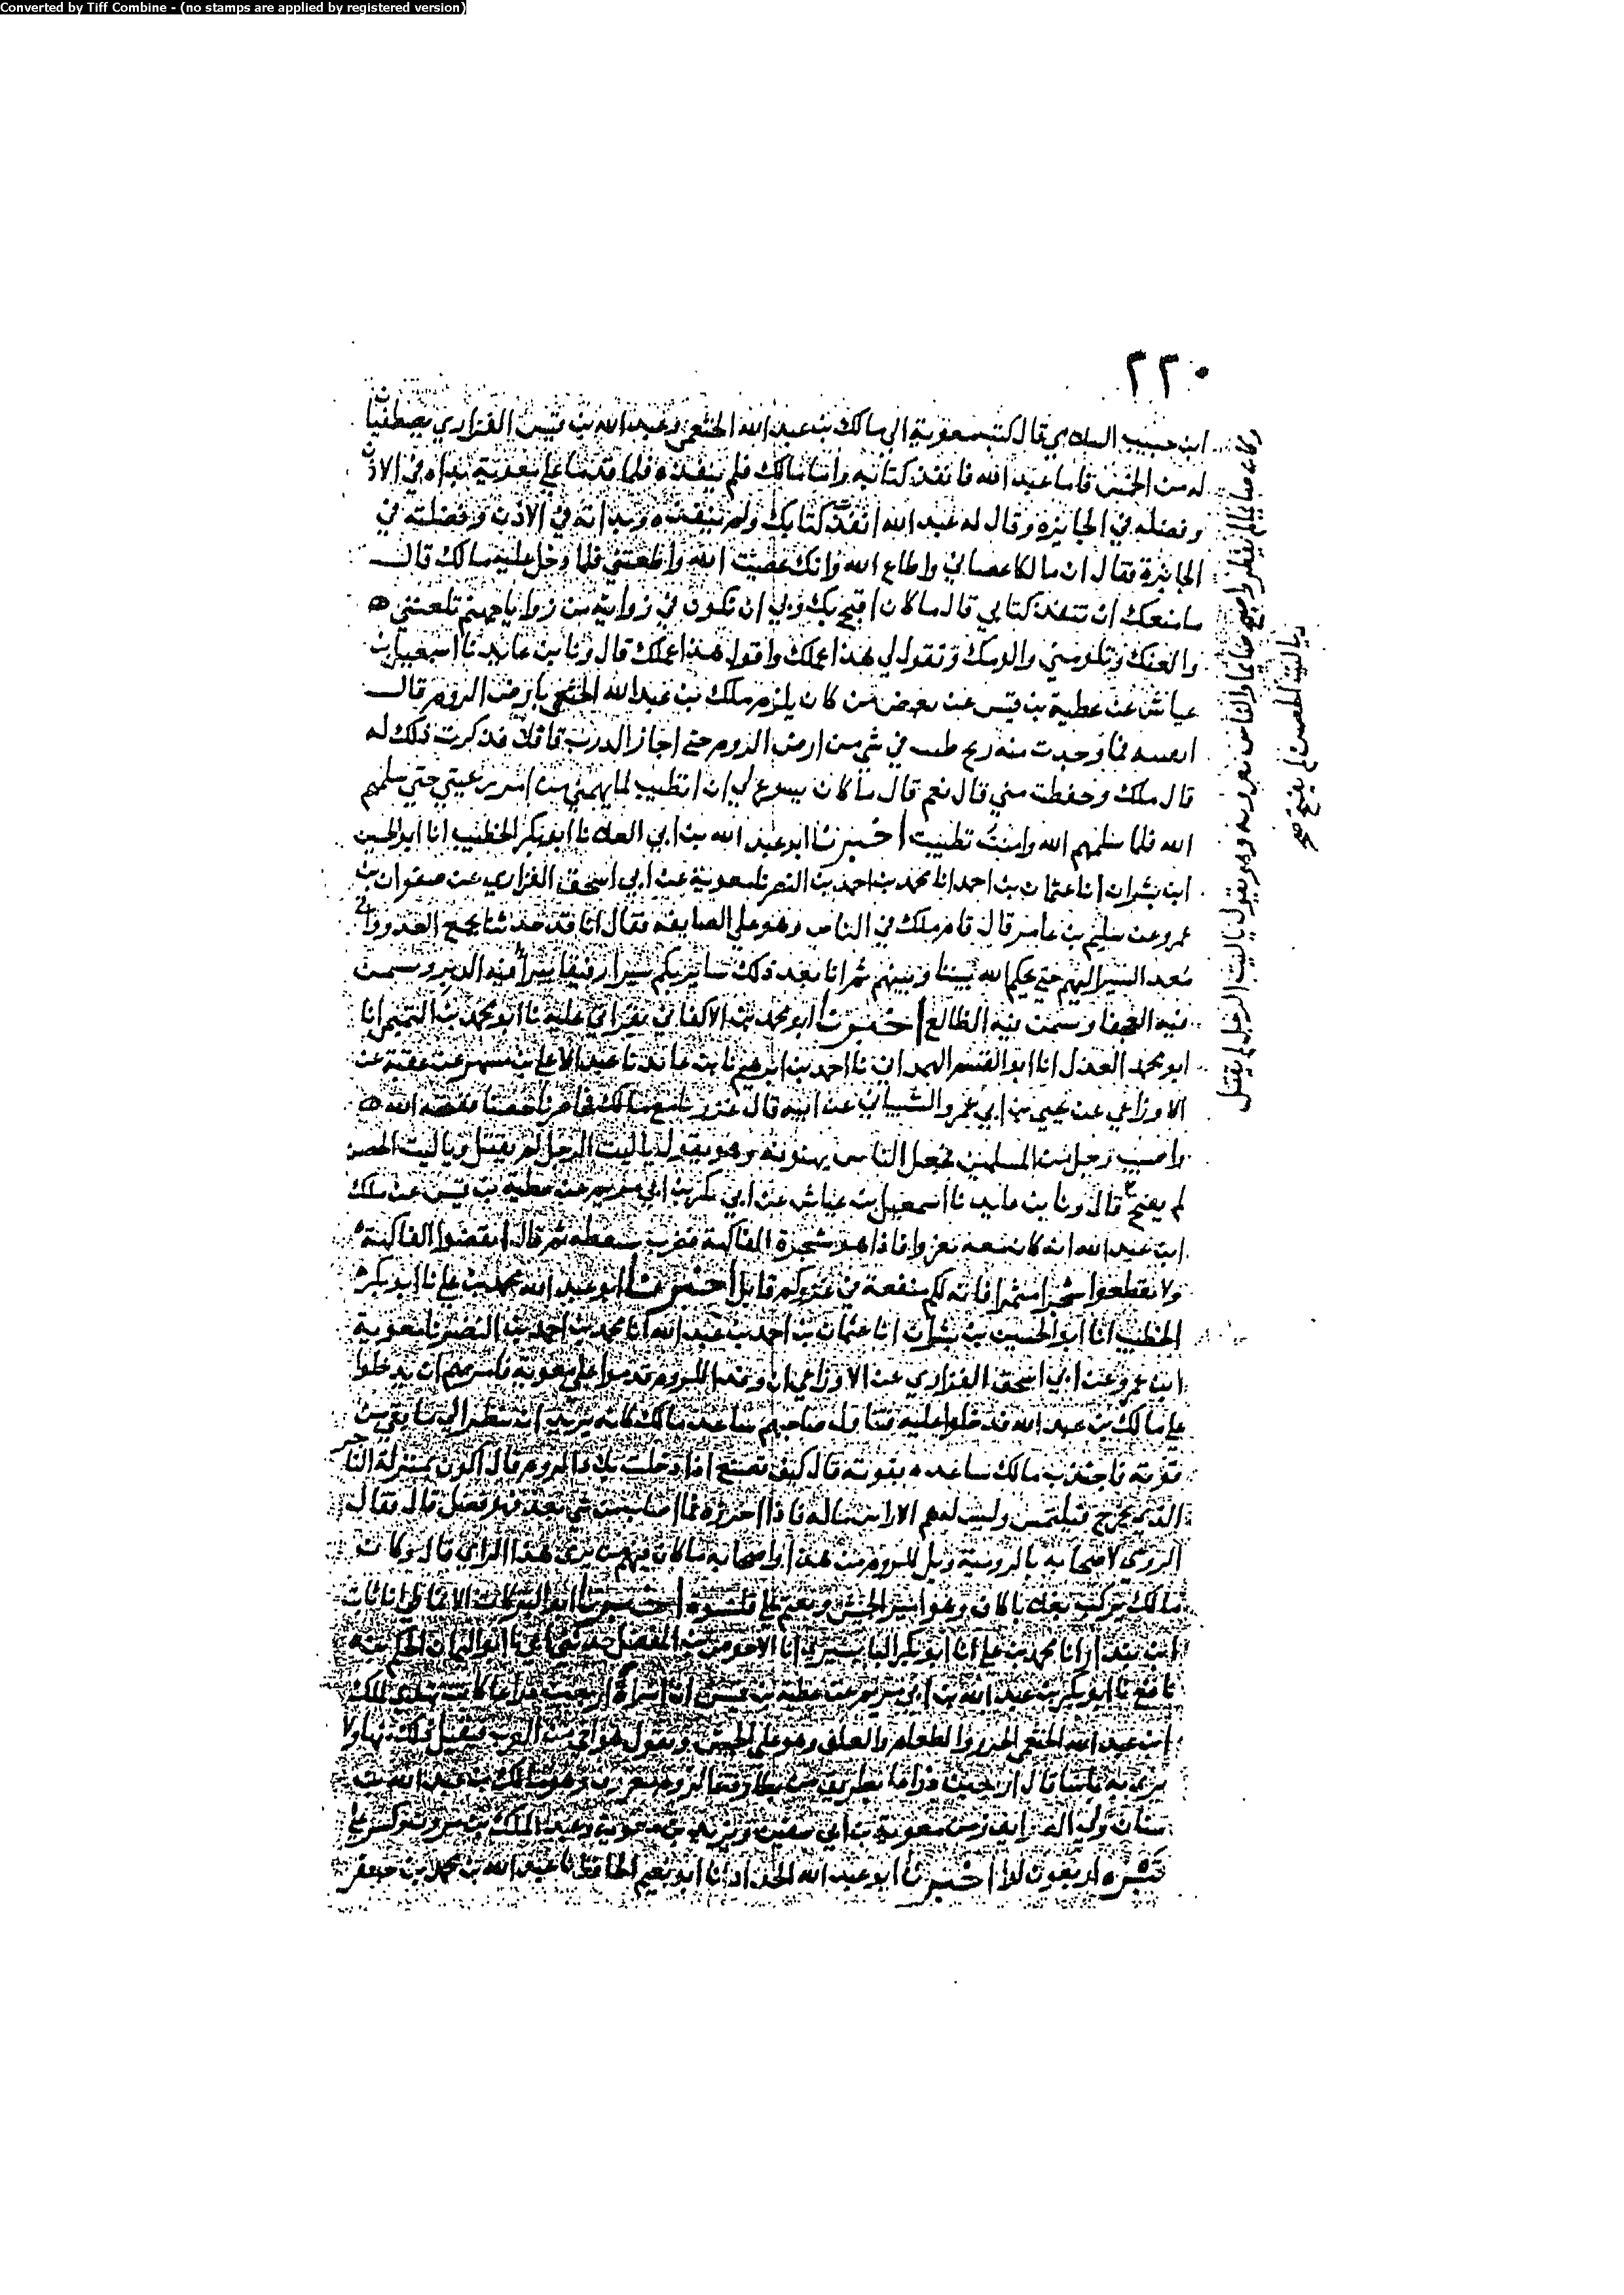 Converted by Tiff Combine - (no stamps are applied by registered version)
٢٢٠
ابن حبيب السلامي قال كتب معوية الى مالك بن عبد الله الخثعمي وعبد الله بن قيس الفزاري يصطفيان
له من الخمس فاما عبد الله فانفذ كتابه واما مالك فلم ينفذه فلما قدما على معوية بداه في الاذن
وفضله في الجايزة وقال له عبد الله انفذت كتابك ولم ينفذه وبداته في الاذن وفضلته في
الجايزة فقال ان مالكا عصاني واطاع الله وانك عصيت الله واطعتني فلما دخل عليه مالك قال
ما منعك ان تنفذ كتابي قال ما كان اقبح بك وبي ان نكون في زواية من زوايا جهنم تلعنني
والعنك وتلومني والومك وتقول لي هذا عملك واقول هذا عملك قال ونا بن عايد نا اسمعيل بن
عياش عن عطية بن قيس عن بعض من كان يلزم ملك بن عبد الله الخثعمي بارض الروم قال
فما وجدت منه ريح طيب في شي من ارض الروم حتى اجاز الدرب قافلا فذكرت ذلك له
قال ملك وحفظت مني قال نعم قال ما كان يسوغ لي ان اتطيب لما يهمني من امر رعيتي حتى سلمهم
الله فلما سلمهم الله وامنت تطيبت اخبرنا ابو عبد الله بن ابي العلا نا ابو بكر الخطيب انا ابو الحسين
ابن بشران انا عثمان بن احمد انا محمد بن احمد بن النصر نا معوية عن ابي اسحق الفزاري عن صفوان بن
عمرو عن سليم بن عامر قال قام ملك في الناس وهو على الصايفة فقال انا قد حدثنا بجمع العدو وانا
نغد السير اليهم حتى يحكم الله بيننا وبينهم ثم انا بعد ذلك ساير بكم سيرا رفيقا يبرا فيه الدبر ويسمن
فيه العجفا ويسمن فيه الظالع اخبرنا ابو محمد بن الاكفاني بقراتي عليه نا ابو محمد بن التميمي انا
ابو محمد العدل انا ابو القسم الهمداني نا احمد بن ابرهيم نا بن عايد نا عبد الاعلى بن مسهر عن عقبة عن
الاوزاعي عن يحيى بن ابي عمرو الشيباني عن ابيه قال غزونا مع مالك فحاصرنا حصنا ففتحه الله
واصيب رجل من المسلمين فجعل الناس يهنونه وهو يقول ياليت الرجل لم يقتل وياليت الحصن
لم يفتح قال ونا بن عايد نا اسمعيل بن عياش عن ابي بكر بن ابي مريم عن عطية بن قيس عن ملك
ابن عبد الله انه كان معه بغزو فاذا هو بشجرة الفاكهة فضرب بسوطه ثم قال انقضوا الفاكهة
ولا تقطعوا شجرا مثمرا فانه لكم منفعة في غزوكم قابل اخبرنا ابو عبد الله محمد بن علي نا ابو بكر
الخطيب انا ابو الحسين بن بشران انا عثمان بن احمد بن عبد الله انا محمد بن احمد بن النصر نا معوية
ابن عمرو عن ابي اسحق الفزاري عن الاوزاعي ان وفدا للروم قدموا على معوية فامرهم ان يدخلوا
على مالك بن عبد الله فدخلوا عليه فتناول صاحبهم ساعد مالك كانه يريد ان ينظر الى ما بقي من
قوته فاجتذب مالك ساعده بقوته قال كيف تصنع اذا دخلت بلاد الروم قال اكون بمنزلة التاجر
الذي يخرج فيلتمس وليس له هم الا راس ماله فاذا احرزه فما اصاب من شي بعد فهو فضل قال فقال
الرومي لاصحابه بالرومية ويل للروم من هذا واصحابه ما كان فيهم من يرى هذا الراي قال وكان
مالك يركب بغلا باكاف وهو امير الجيش ويعتم على قلنسوة اخبرنا ابو البركات الانماطي انا ثابت
ابن بندار انا محمد بن علي انا ابو بكر البابسيري انا الاحوص بن المفضل حدثني ابي نا ابو اليمان الحكم بن
نافع نا ابو بكر بن عبد الله بن ابي مريم عن عطية بن قيس ان امراة كانت تهدي لملك
ابن عبد الله الخثعمي الجزر والطعام والعلف وهو على الجيش وتقول هو اخي من العرب فيقبل ذلك منها ولا
يرى به باسا قال بطريق من بطارقة الروم وهو مالك بن عبد الله بن
سنان ولي الصوايف زمن معوية بن ابي سفين ويزيد بن معوية وعبد الملك بن مروان وكسر على
قبره اربعون لوا اخبرنا ابو عبد الله الحداد انا ابو نعيم الحافظ نا عبد الله بن محمد بن جعفر
وهو يقول ياليت الرجل لم يقتل
وياليت الحصن لم يفتح صح